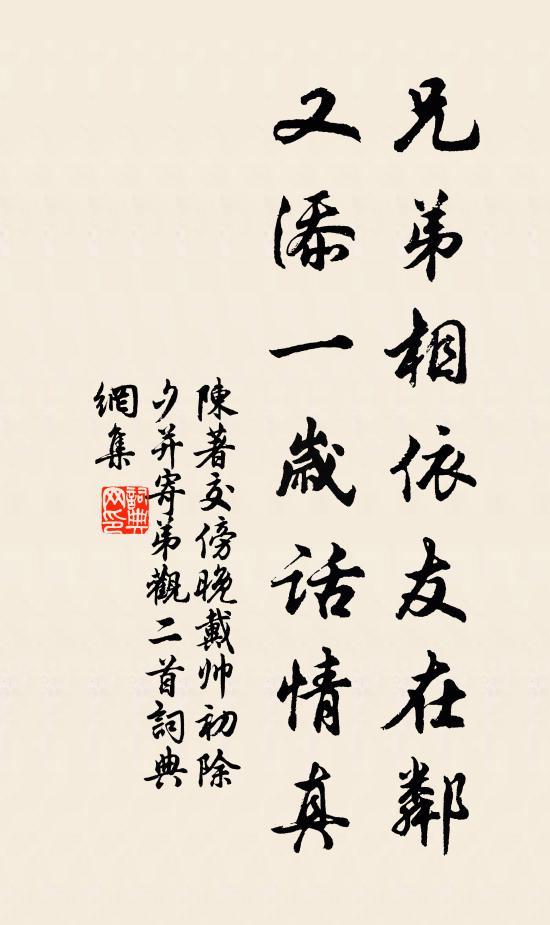 兄弟相依友在鄰
又添一歲話情真
陳著交傍晚戴帅初除
夕并寄弟觀二首詞典
網集
詞典
网印